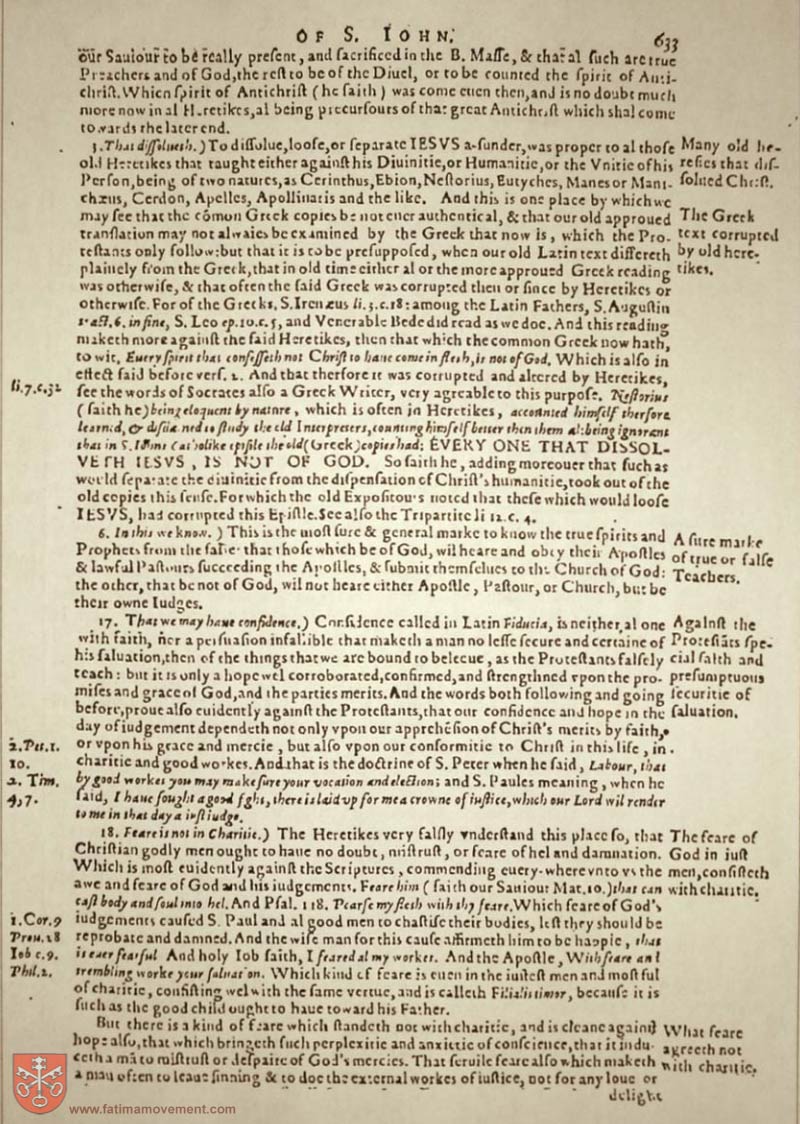 OF S. IOHN.
633
our Sauiour to be really preſent, and ſacrificed in the B. Maſſe, & that al ſuch are true
Preachers and of God, the reſt to be of the Diuel, or to be counted the ſpirit of Anti-
chriſt. Which ſpirit of Antichriſt (he ſaith) was come euen then, and is no doubt much
more now in al Heretikes, al being precurſours of that great Antichriſt which ſhal come
towards the later end.
3. That diſſolueth.) To diſſolue, looſe, or ſeparate IESVS a-ſunder, was proper to al thoſe
old Heretikes that taught either againſt his Diuinitie, or Humanitie, or the Vnitie of his
Perſon, being of two natures, as Cerinthus, Ebion, Neſtorius, Eutyches, Manes or Mani-
chæus, Cerdon, Apelles, Apollinaris and the like. And this is one place by which we
may ſee that the cõmon Greek copies be not euer authentical, & that our old approued
tranſlation may not alwaies be examined by the Greek that now is, which the Pro-
teſtants only follow: but that it is to be preſuppoſed, when our old Latin text differeth
plainely from the Greek, that in old time either al or the more approued Greek reading
was otherwiſe, & that often the ſaid Greek was corrupted then or ſince by Heretikes or
otherwiſe. For of the Greeks, S. Irenæus li. 3. c. 18: among the Latin Fathers, S. Auguſtin
tract. 6. in fine, S. Leo ep. 10. c. 5, and Venerable Bede did read as we doe. And this reading
maketh more againſt the ſaid Heretikes, then that which the common Greek now hath,
to wit, Euery ſpirit that confeſſeth not Chriſt to haue come in fleſh, is not of God. Which is alſo in
effect ſaid before verſ. 2. And that therfore it was corrupted and altered by Heretikes,
ſee the words of Socrates alſo a Greek Writer, very agreable to this purpoſe. Neſtorius
(ſaith he) being eloquent by nature, which is often in Heretikes, accounted himſelf therfore
learned, & diſdained to ſtudy the old Interpreters, counting himſelf better then them al: being ignorant
that in S. Iohns Catholike epiſtle the old (Greek) copies had: EVERY ONE THAT DISSOL-
VETH IESVS, IS NOT OF GOD. So ſaith he, adding moreouer that ſuch as
would ſeparate the diuinitie from the diſpenſation of Chriſt's humanitie, took out of the
old copies this ſenſe. For which the old Expoſitours noted that theſe which would looſe
IESVS, had corrupted this Epiſtle. See alſo the Tripartite li 12. c. 4.
Many old he-
reſies that diſ-
ſolued Chriſt.
The Greek
text corrupted
by old here-
tikes.
li. 7. c. 32
6. In this we know.) This is the moſt ſure & general marke to know the true ſpirits and
Prophets from the falſe: that thoſe which be of God, wil heare and obey their Apoſtles
& lawful Paſtours ſucceeding the Apoſtles, & ſubmit themſelues to the Church of God:
the other, that be not of God, wil not heare either Apoſtle, Paſtour, or Church, but be
their owne Iudges.
A ſure marke
of true or falſe
Teachers.
17. That we may haue confidence.) Confidence called in Latin Fiducia, is neither al one
with faith, nor a perſuaſion infallible that maketh a man no leſſe ſecure and certaine of
his ſaluation, then of the things that we are bound to beleeue, as the Proteſtants falſely
teach: but it is only a hope wel corroborated, confirmed, and ſtrengthned vpon the pro-
miſes and grace of God, and the parties merits. And the words both following and going
before, proue alſo euidently againſt the Proteſtants, that our confidence and hope in the
day of iudgement dependeth not only vpon our apprehẽſion of Chriſt's merits by faith,
or vpon his grace and mercie, but alſo vpon our conformitie to Chriſt in this life, in
charitie and good workes. And that is the doctrine of S. Peter when he ſaid, Labour, that
by good workes you may make ſure your vocation and election; and S. Paules meaning, when he
ſaid, I haue fought a good fight, there is laid vp for me a crowne of iuſtice, which our Lord wil render
to me in that day a iuſt iudge.
Againſt the
Proteſtãts ſpe-
cial faith and
preſumptuous
ſecuritie of
ſaluation.
2. Pet. 1.
10.
2. Tim.
4, 7.
18. Feare is not in Charitie.) The Heretikes very falſly vnderſtand this place ſo, that
Chriſtian godly men ought to haue no doubt, miſtruſt, or feare of hel and damnation.
Which is moſt euidently againſt the Scriptures, commending euery-where vnto vs the
awe and feare of God and his iudgements. Feare him (ſaith our Sauiour Mat. 10.) that can
caſt body and ſoul into hel. And Pſal. 118. Pearſe my fleſh with thy feare. Which feare of God's
iudgements cauſed S. Paul and al good men to chaſtiſe their bodies, leſt they ſhould be
reprobate and damned. And the wiſe man for this cauſe affirmeth him to be happie, that
is euer fearful And holy Iob ſaith, I feared al my workes. And the Apoſtle, With feare and
trembling worke your ſaluation. Which kind of feare is euen in the iuſteſt men and moſt ful
of charitie, conſiſting wel with the ſame vertue, and is called Filialis timor, becauſe it is
ſuch as the good child ought to haue toward his Father.
The feare of
God in iuſt
men, conſiſteth
with charitie.
1. Cor. 9
Prou. 28
Iob c. 9.
Phil. 2.
But there is a kind of feare which ſtandeth not with charitie, and is cleane againſt
hope alſo, that which bringeth ſuch perplexitie and anxietie of conſcience, that it indu-
ceth a mã to miſtruſt or deſpaire of God's mercies. That ſeruile feare alſo which maketh
a man often to leaue ſinning & to doe the external workes of iuſtice, not for any loue or
delight
What feare
agreeth not
with charitie.
www.fatimamovement.com